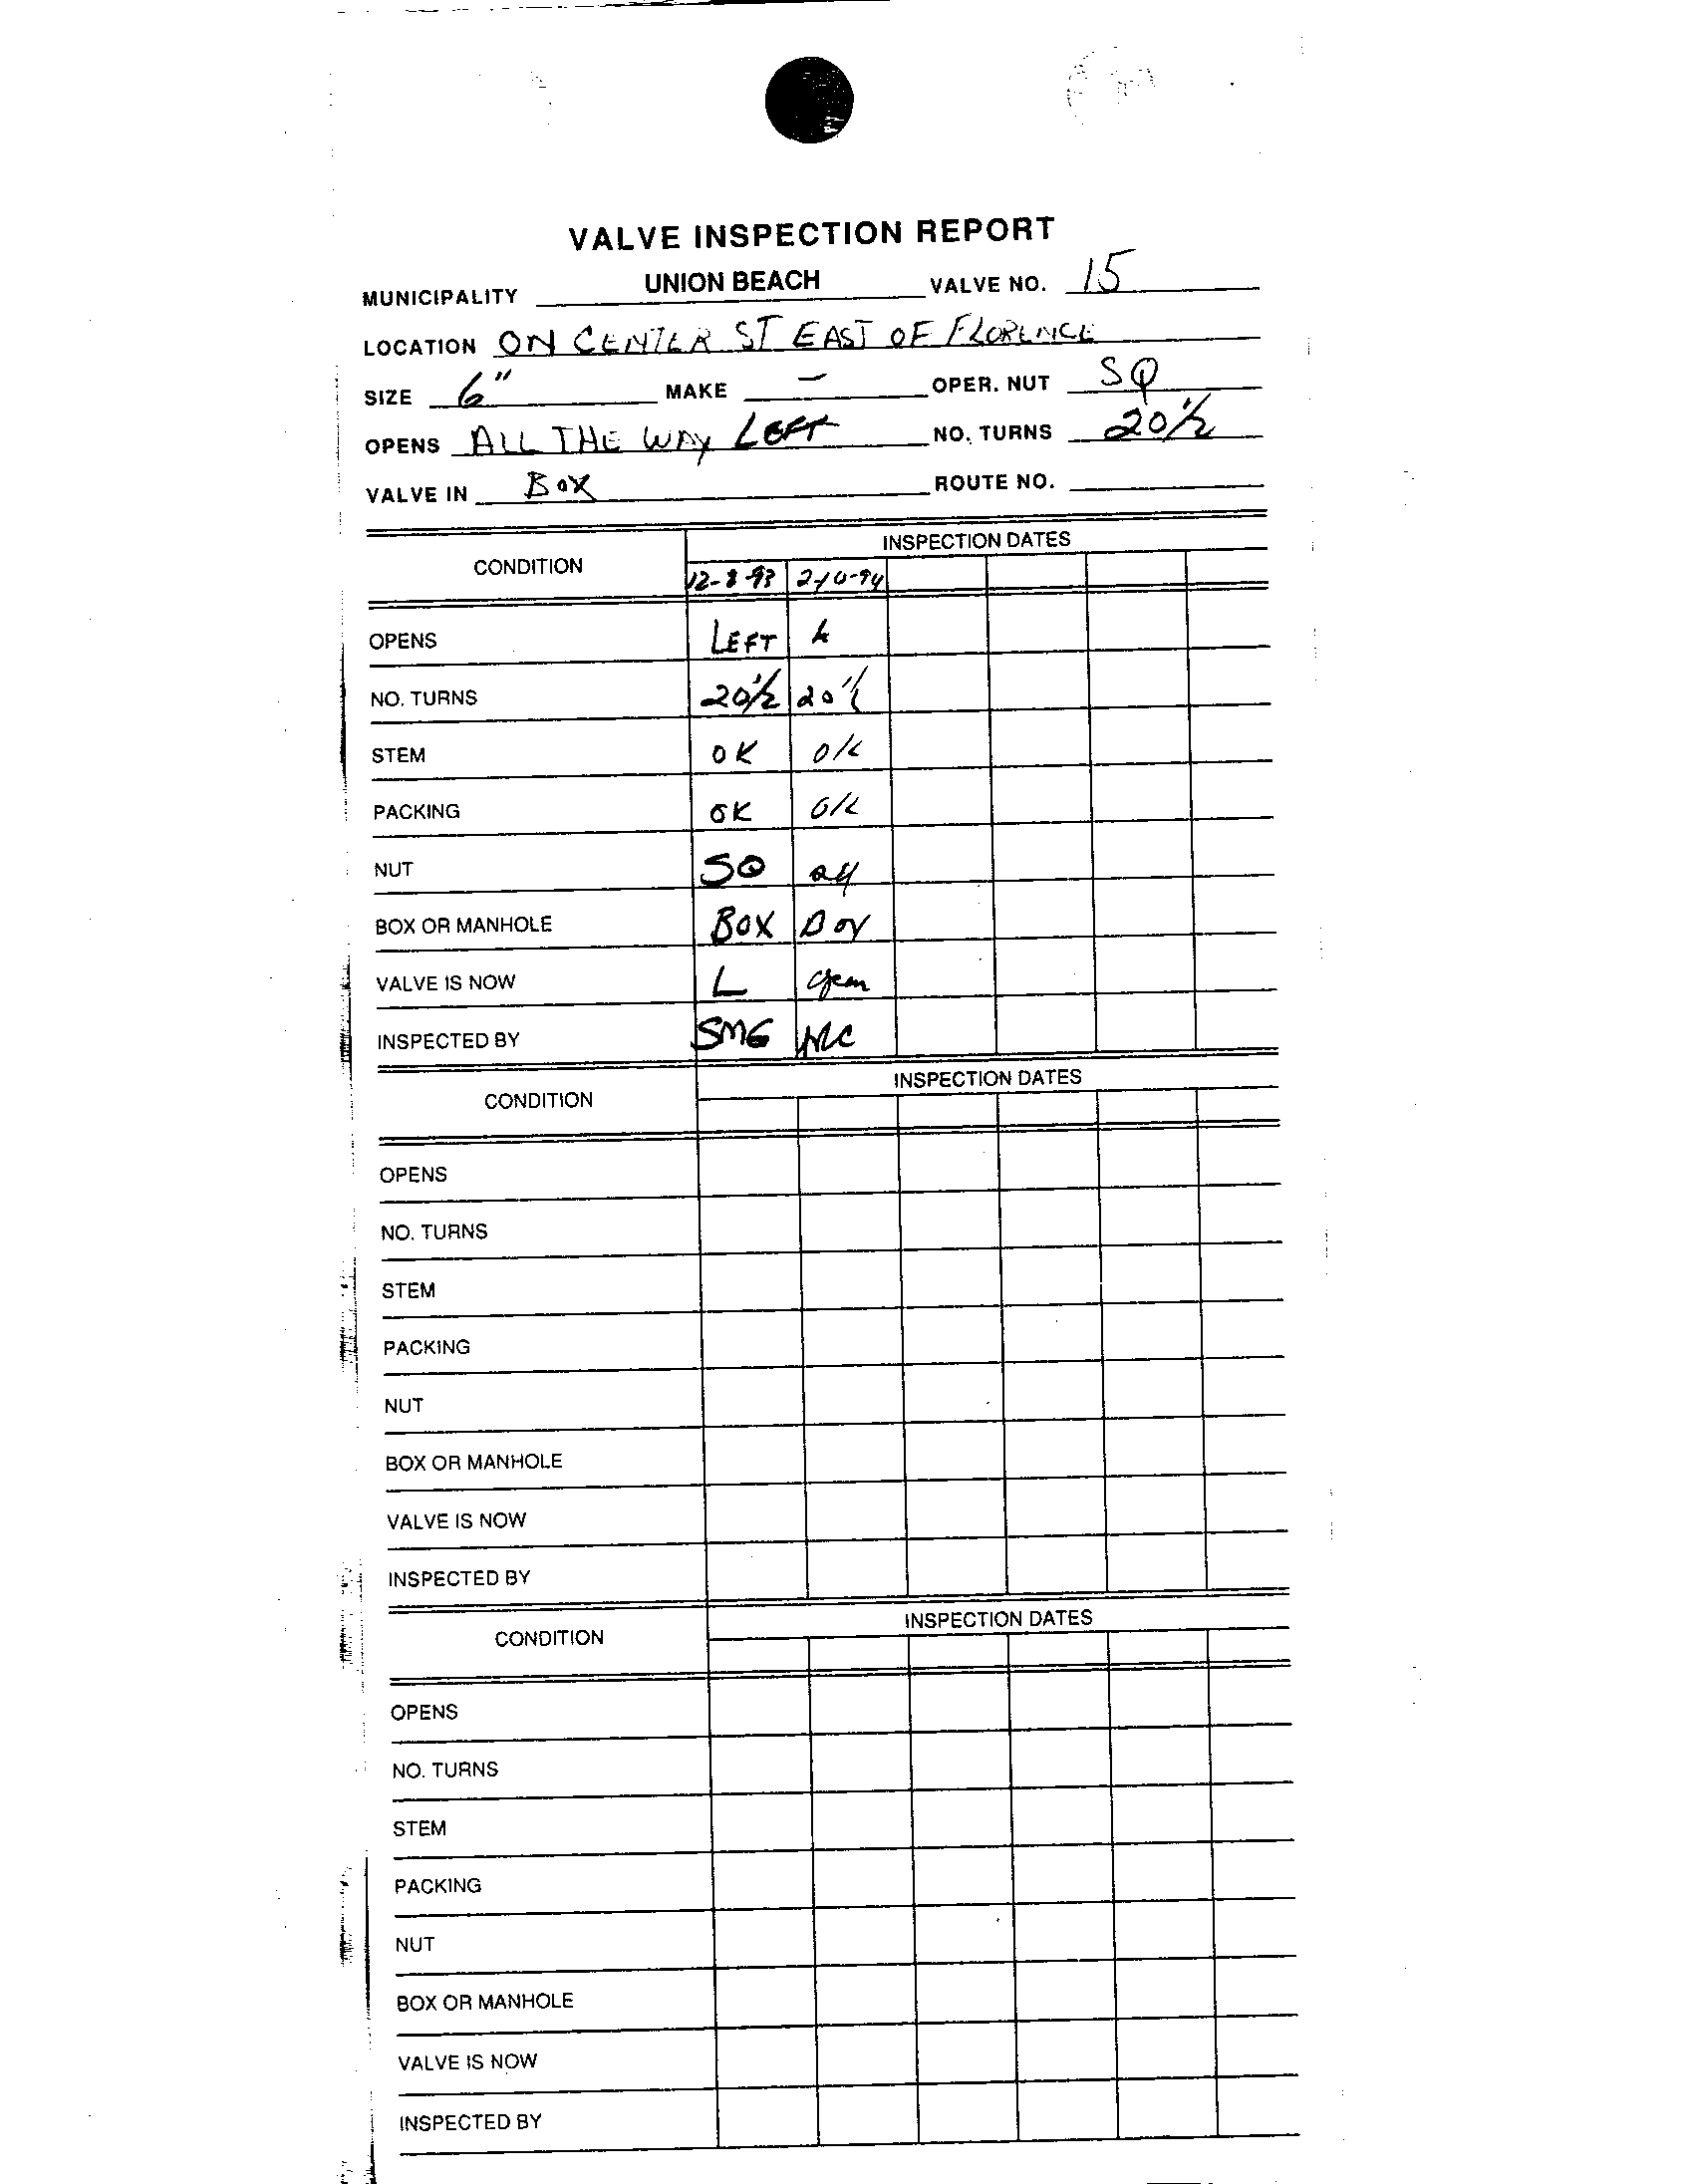 VALVE INSPECTION REPORT
MUNICIPALITY UNION BEACH VALVE NO. 15
LOCATION ON CENTER ST EAST OF FLORENCE
SIZE 6" MAKE — OPER. NUT SQ
OPENS ALL THE WAY LEFT NO. TURNS 20 1/2
VALVE IN BOX ROUTE NO.
CONDITION INSPECTION DATES
12-8-93 2-10-94
OPENS LEFT L
NO. TURNS 20 1/2 20 1/2
STEM OK OK
PACKING OK OK
NUT SQ
BOX OR MANHOLE BOX Box
VALVE IS NOW L open
INSPECTED BY SMG
CONDITION INSPECTION DATES
OPENS
NO. TURNS
STEM
PACKING
NUT
BOX OR MANHOLE
VALVE IS NOW
INSPECTED BY
CONDITION INSPECTION DATES
OPENS
NO. TURNS
STEM
PACKING
NUT
BOX OR MANHOLE
VALVE IS NOW
INSPECTED BY